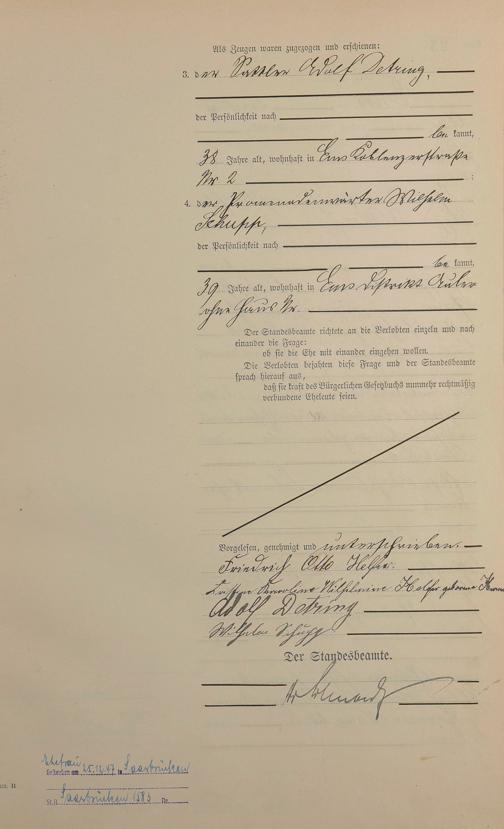 Als Zeugen waren zugezogen und erschienen:
3. der Sattler Adolf Detring,
der Persönlichkeit nach
be kannt,
38 Jahre alt, wohnhaft in Ems Koblenzerstraße
Nr 2 ;
4. der Promenadenwärter Wilhelm
Schupp,
der Persönlichkeit nach
be kannt,
39 Jahre alt, wohnhaft in Ems Distrikt Auler
ohne Haus Nr.
Der Standesbeamte richtete an die Verlobten einzeln und nach
einander die Frage:
ob sie die Ehe mit einander eingehen wollen.
Die Verlobten bejahten diese Frage und der Standesbeamte
sprach hierauf aus,
daß sie kraft des Bürgerlichen Gesetzbuchs nunmehr rechtmäßig
verbundene Eheleute seien.
Vorgelesen, genehmigt und unterschrieben.
Friedrich Otto
Karoline Wilhelmine geborene
Adolf Detring
Wilhelm Schupp
Der Standesbeamte.
Ehefrau
Gestorben am 25.12.47 in Saarbrücken
St.A. Saarbrücken Nr.